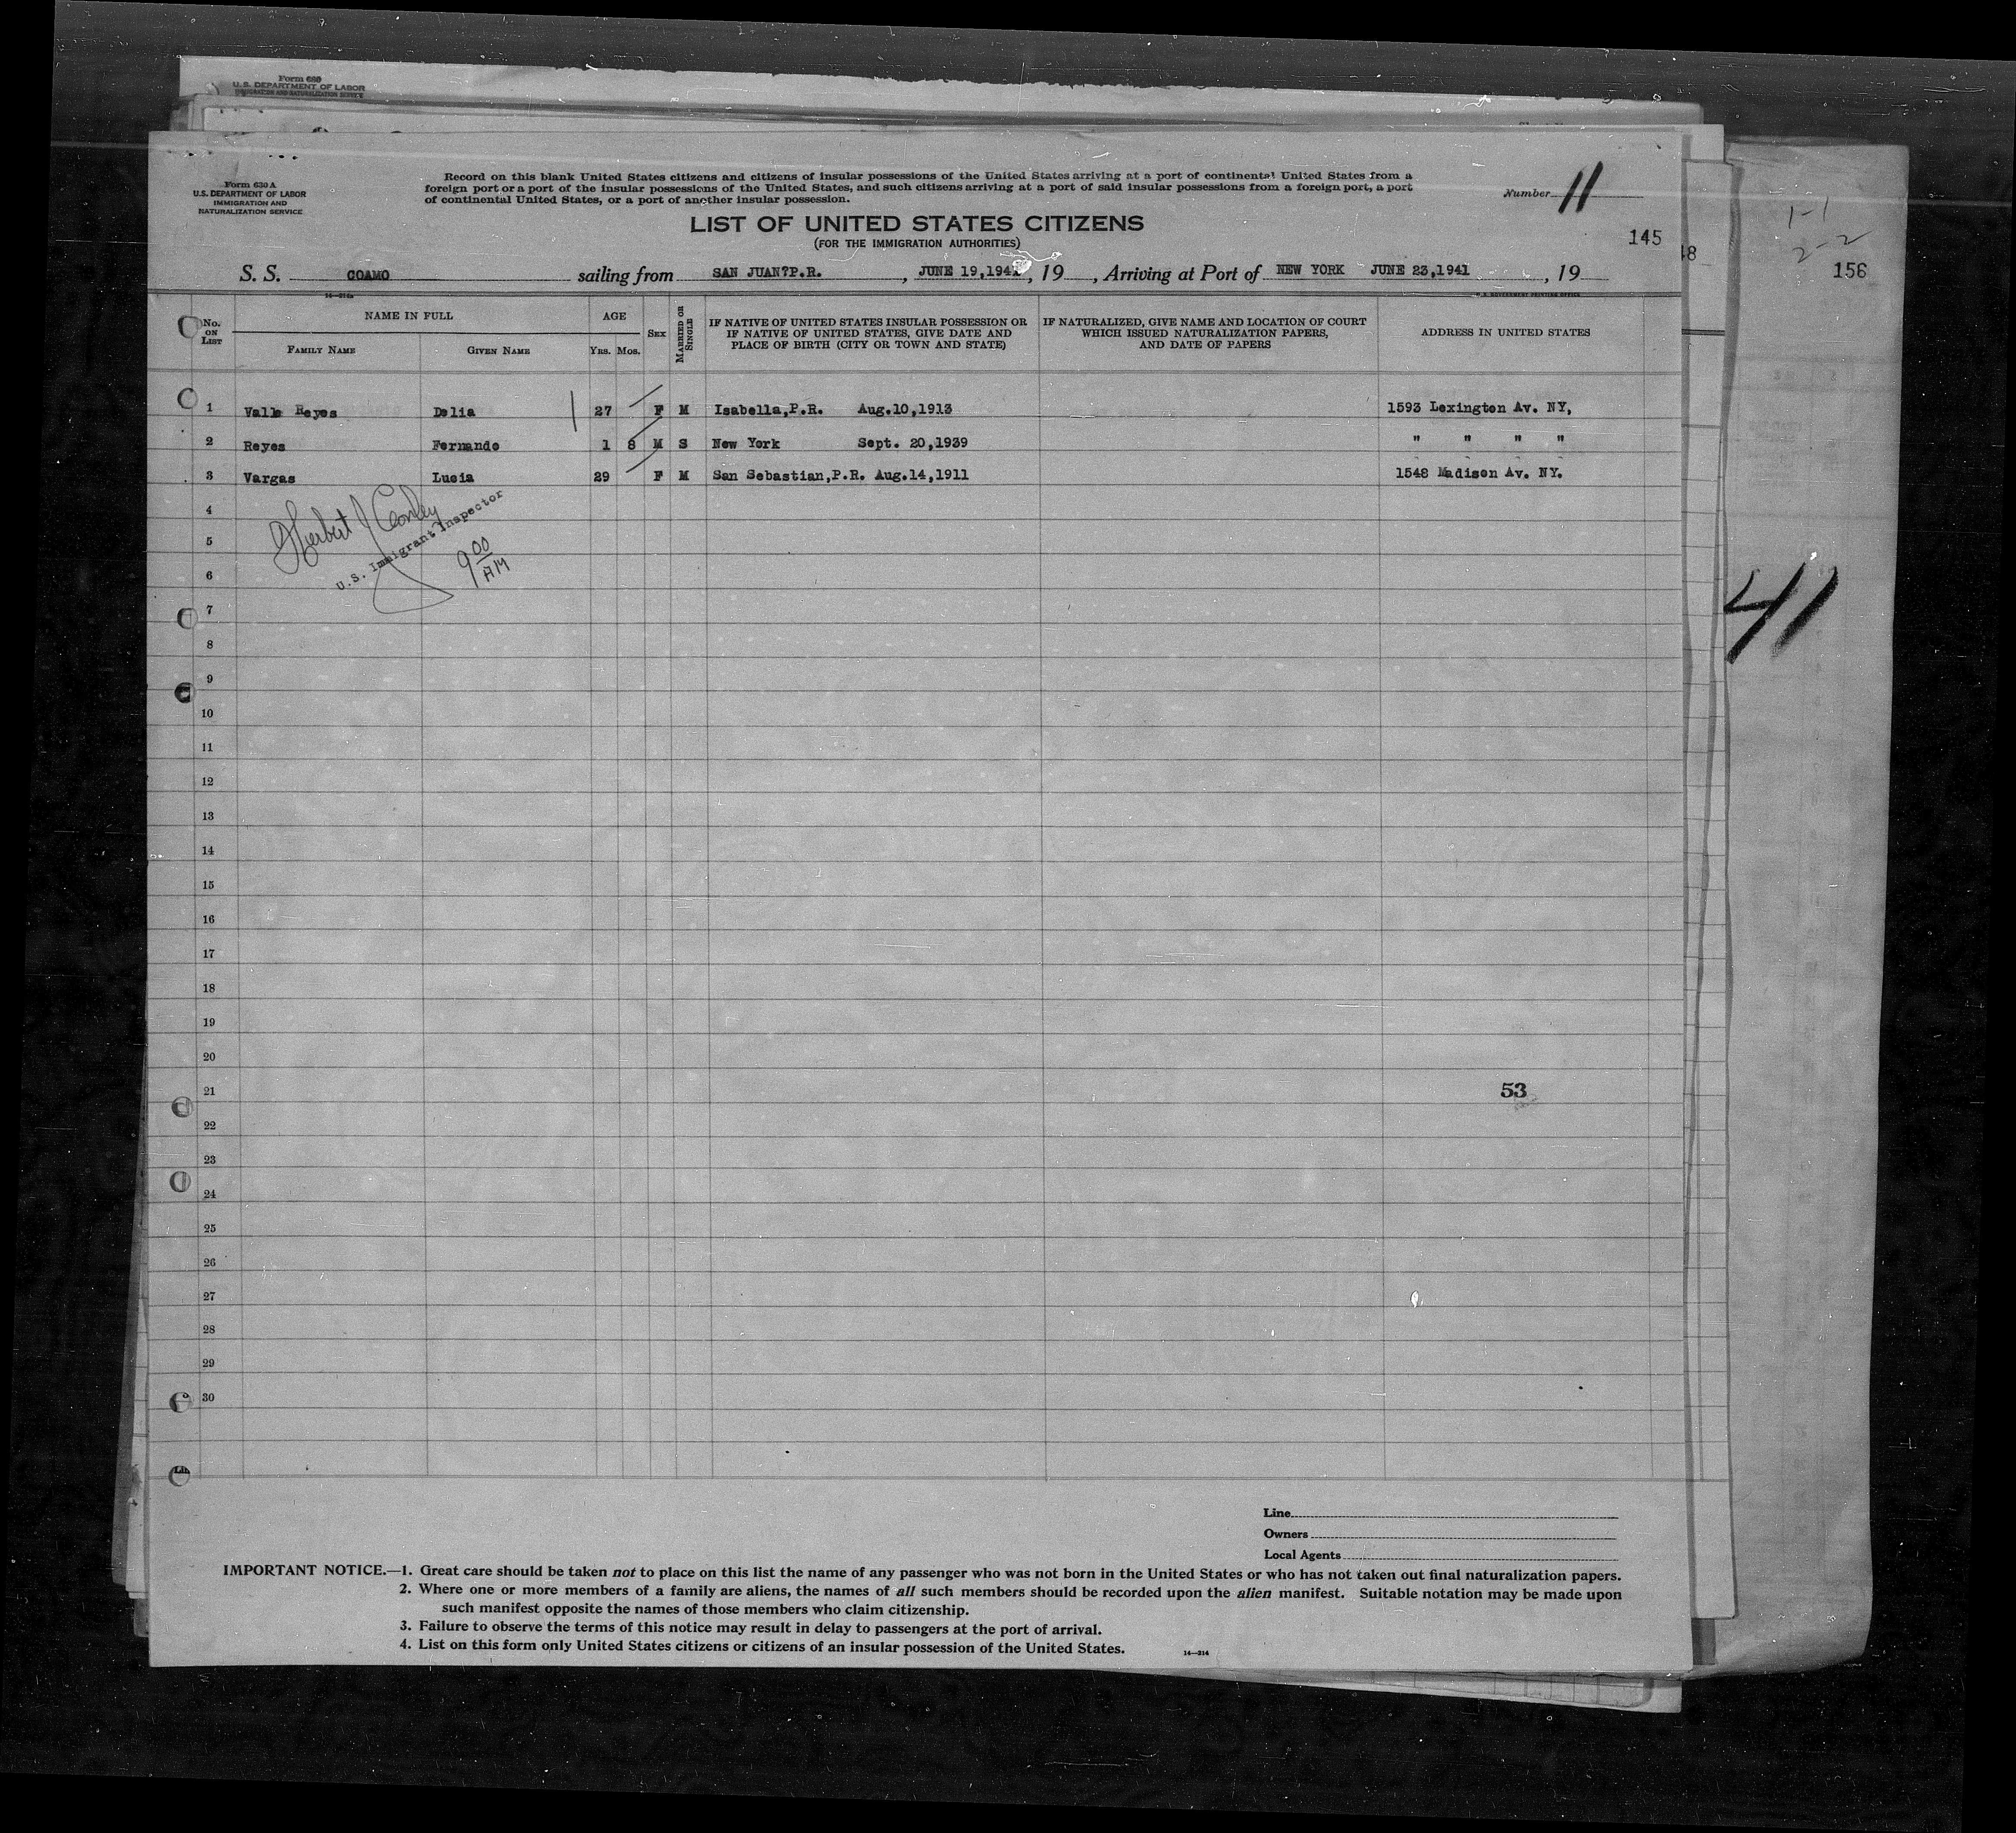 Form 680
U.S. DEPARTMENT OF LABOR
IMMIGRATION AND NATURALIZATION SERVICE
Form 630 A
U.S. DEPARTMENT OF LABOR
IMMIGRATION AND
NATURALIZATION SERVICE
Record on this blank United States citizens and citizens of insular possessions of the United States arriving at a port of continental United States from a
foreign port or a port of the insular possessions of the United States, and such citizens arriving at a port of said insular possessions from a foreign port, a port
of continental United States, or a port of another insular possession.
Number 11
LIST OF UNITED STATES CITIZENS
(FOR THE IMMIGRATION AUTHORITIES)
145
48
1-1
2-2
156
S. S. COAMO sailing from SAN JUAN?P.R. , JUNE 19,1941, 19 , Arriving at Port of NEW YORK JUNE 23,1941 , 19
NO. ON LIST NAME IN FULL FAMILY NAME GIVEN NAME AGE YRS. MOS. SEX MARRIED OR SINGLE IF NATIVE OF UNITED STATES INSULAR POSSESSION OR IF NATIVE OF UNITED STATES, GIVE DATE AND PLACE OF BIRTH (CITY OR TOWN AND STATE) IF NATURALIZED, GIVE NAME AND LOCATION OF COURT WHICH ISSUED NATURALIZATION PAPERS, AND DATE OF PAPERS ADDRESS IN UNITED STATES
1 Valle Reyes Delia 27 F M Isabella,P.R. Aug.10,1913 1593 Lexington Av. NY,
2 Reyes Fernando 1 8 M S New York Sept. 20,1939 " " " "
3 Vargas Lucia 29 F M San Sebastian,P.R. Aug.14,1911 1548 Madison Av. NY.
4
Herbert J Conley
U.S. Immigrant Inspector
9 00 AM
5
6
7
41
8
9
10
11
12
13
14
15
16
17
18
19
20
21
53
22
23
24
25
26
27
28
29
30
Line
Owners
Local Agents
IMPORTANT NOTICE.—1. Great care should be taken not to place on this list the name of any passenger who was not born in the United States or who has not taken out final naturalization papers.
2. Where one or more members of a family are aliens, the names of all such members should be recorded upon the alien manifest. Suitable notation may be made upon
such manifest opposite the names of those members who claim citizenship.
3. Failure to observe the terms of this notice may result in delay to passengers at the port of arrival.
4. List on this form only United States citizens or citizens of an insular possession of the United States.
14—214